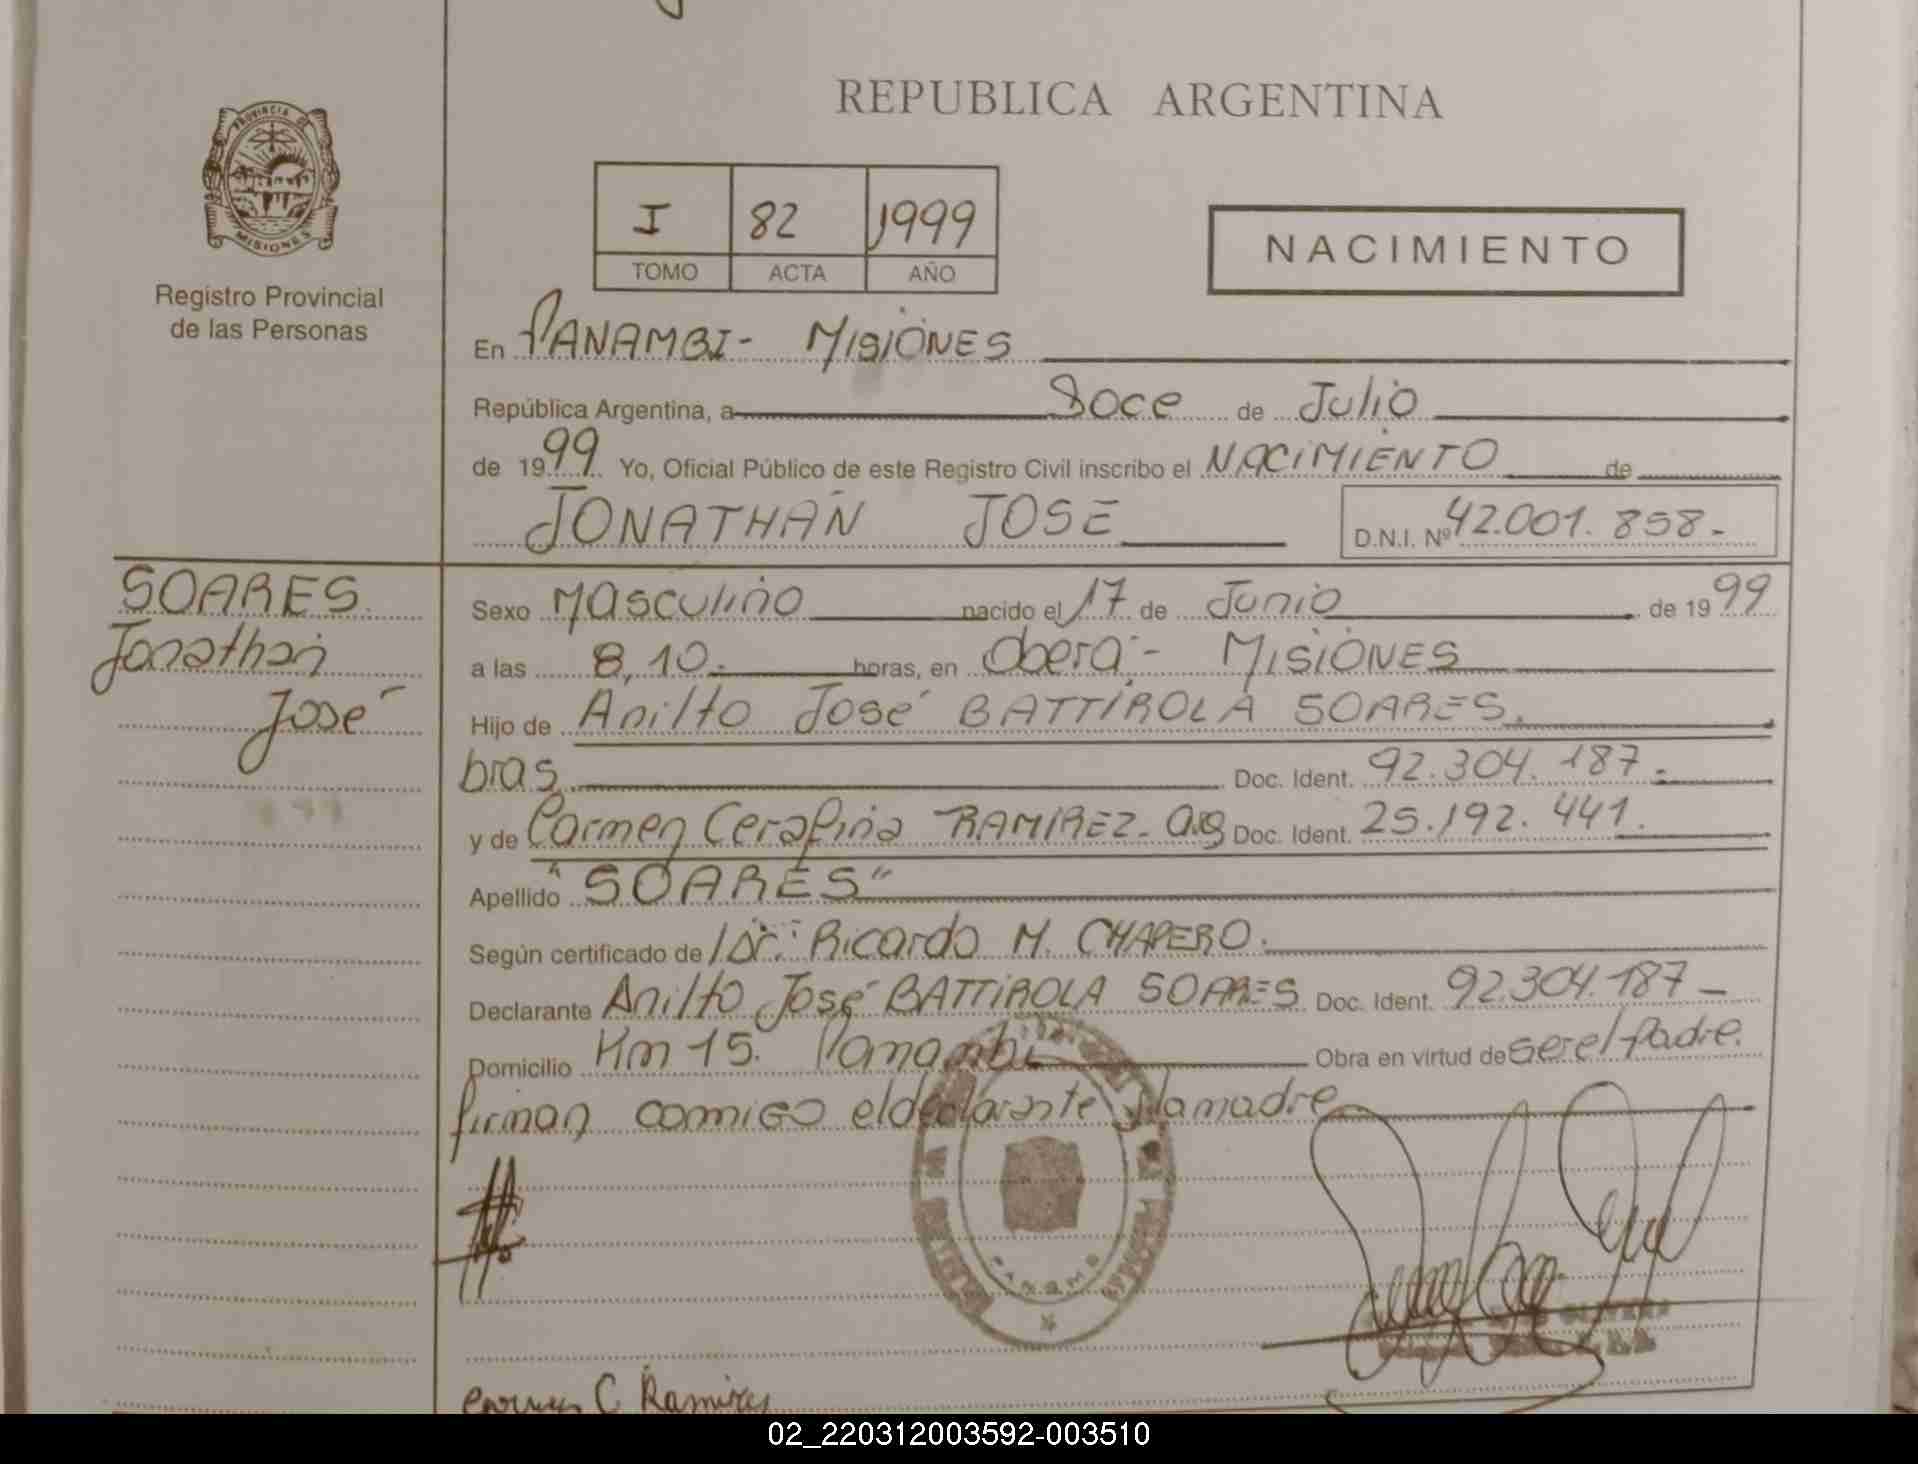 REPUBLICA ARGENTINA
PROVINCIA DE
MISIONES
Registro Provincial
de las Personas
I 82 1999
TOMO ACTA AÑO
NACIMIENTO
En PANAMBI- MISIONES
República Argentina, a Doce de Julio
de 1999 Yo, Oficial Público de este Registro Civil inscribo el NACIMIENTO de
JONATHAN JOSE D.N.I. Nº 42.001.858-
SOARES
Jonathan
José
Sexo Masculino nacido el 17 de Junio de 1999
a las 8,10.- horas, en Oberá- MISIONES
Hijo de Anilto José BATTIROLA SOARES.
bras. Doc. Ident. 92.304.187.-
y de Carmen Cerafina RAMIREZ- arg Doc. Ident. 25.192.441.
Apellido "SOARES"
Según certificado de Dr. Ricardo M. CHAPERO.
Declarante Anilto José BATTIROLA SOARES Doc. Ident. 92.304.187-
Domicilio Km 15. Panambi Obra en virtud de ser el padre.
firman comigo el declarante y la madre
C Ramirez
02_220312003592-003510